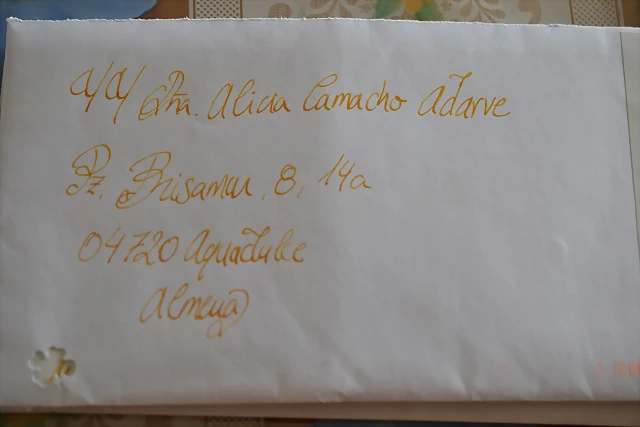 A/A/ Dña. Alicia Camacho Adarve
Pz. Brisamar, 8, 14a
04720 Aguadulce
Almería